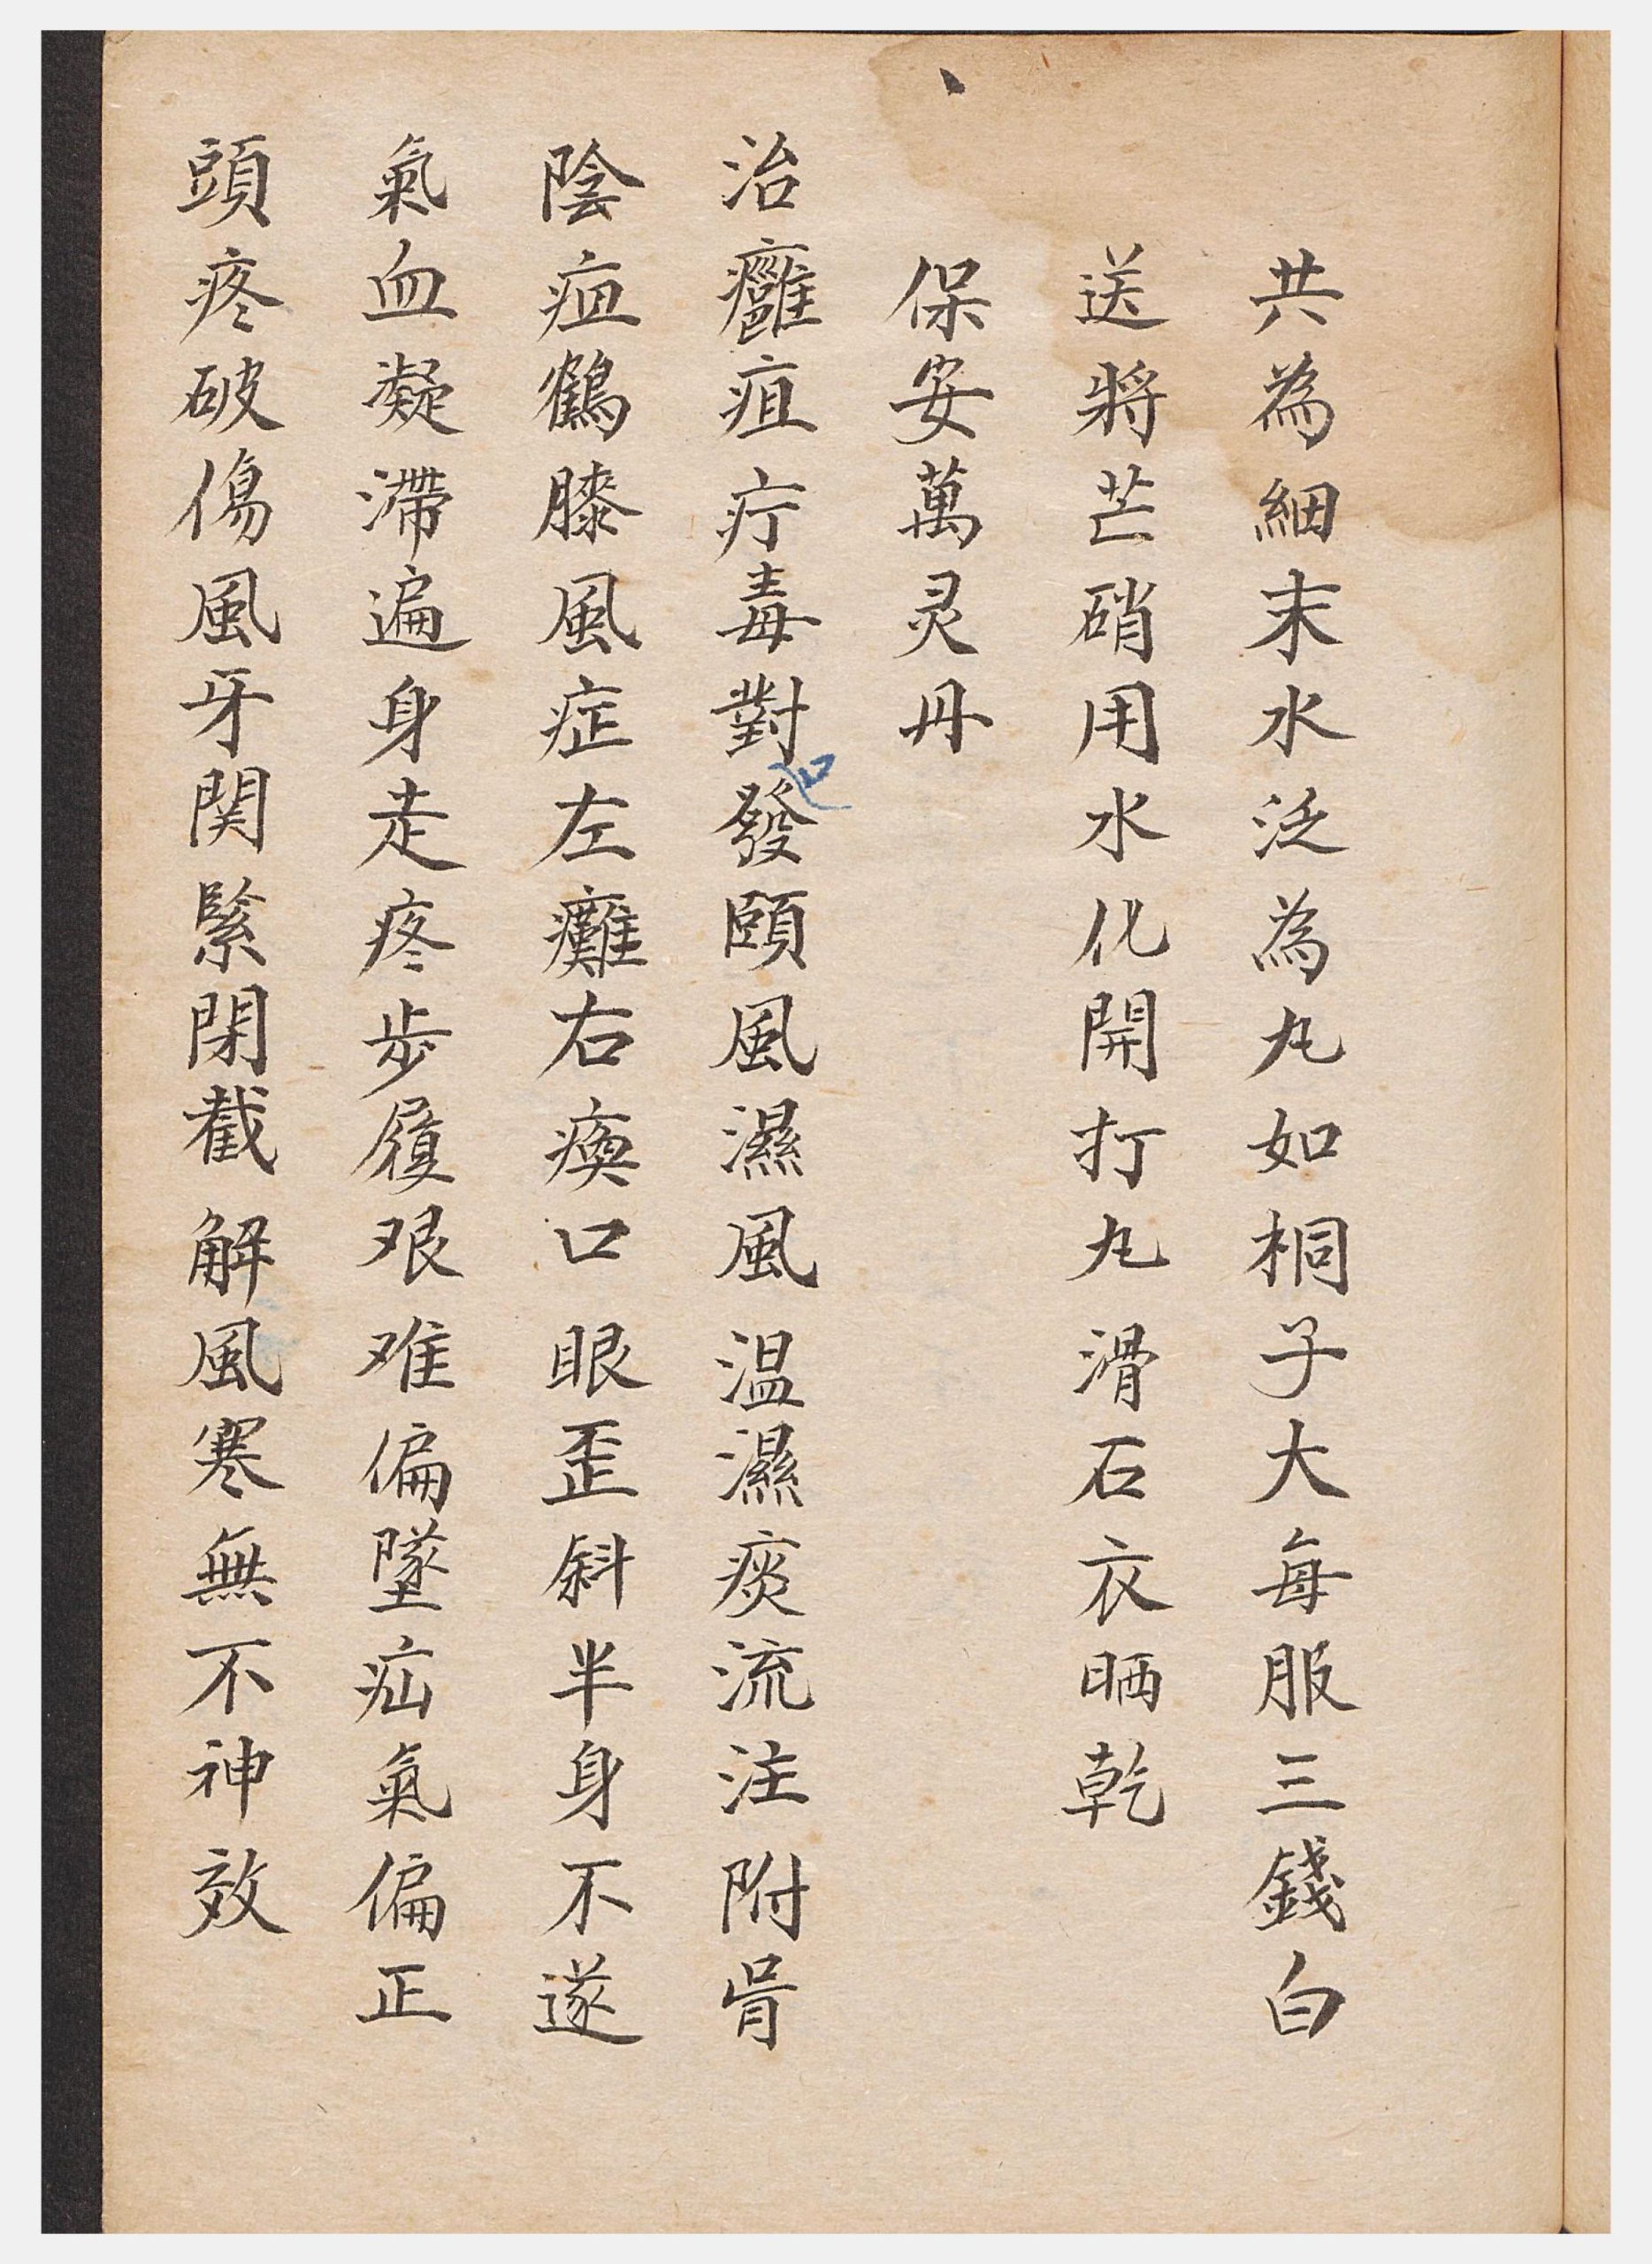 共為細末水泛為丸如桐子大每服三錢白
送將芒硝用水化開打丸滑石衣晒乾
保安萬灵丹
治癰疽疔毒對口發頤風濕風温濕痰流注附骨
陰疽鶴膝風症左癱右瘓口眼歪斜半身不遂
氣血凝滯遍身走疼步履艰难偏墜疝氣偏正
頭疼破傷風牙関緊閉截解風寒無不神效